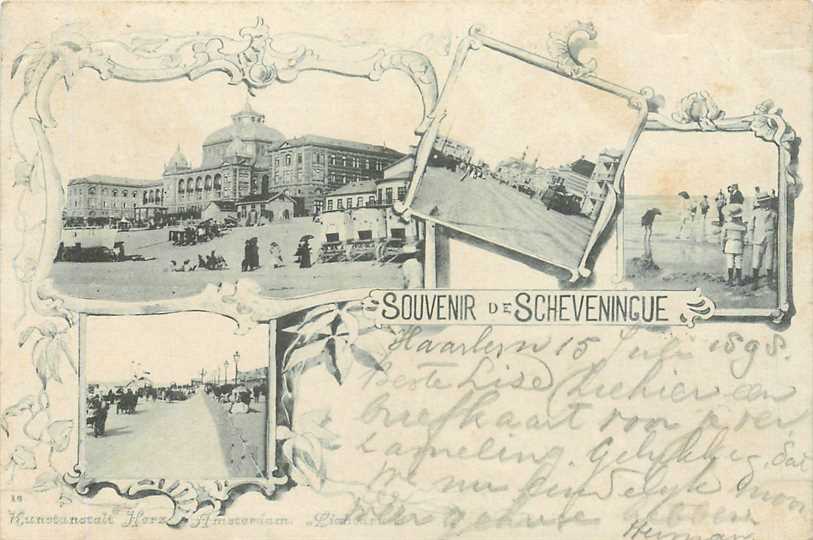 SOUVENIR DE SCHEVENINGUE
Haarlem 15 Juli 1898.
Beste Lise, Ziehier een
briefkaart voor uw ver
zameling. Gelukkig, dat
we nu eindelijk mooi
weer hebben
Herman
18
Kunstanstalt Herz Amsterdam.